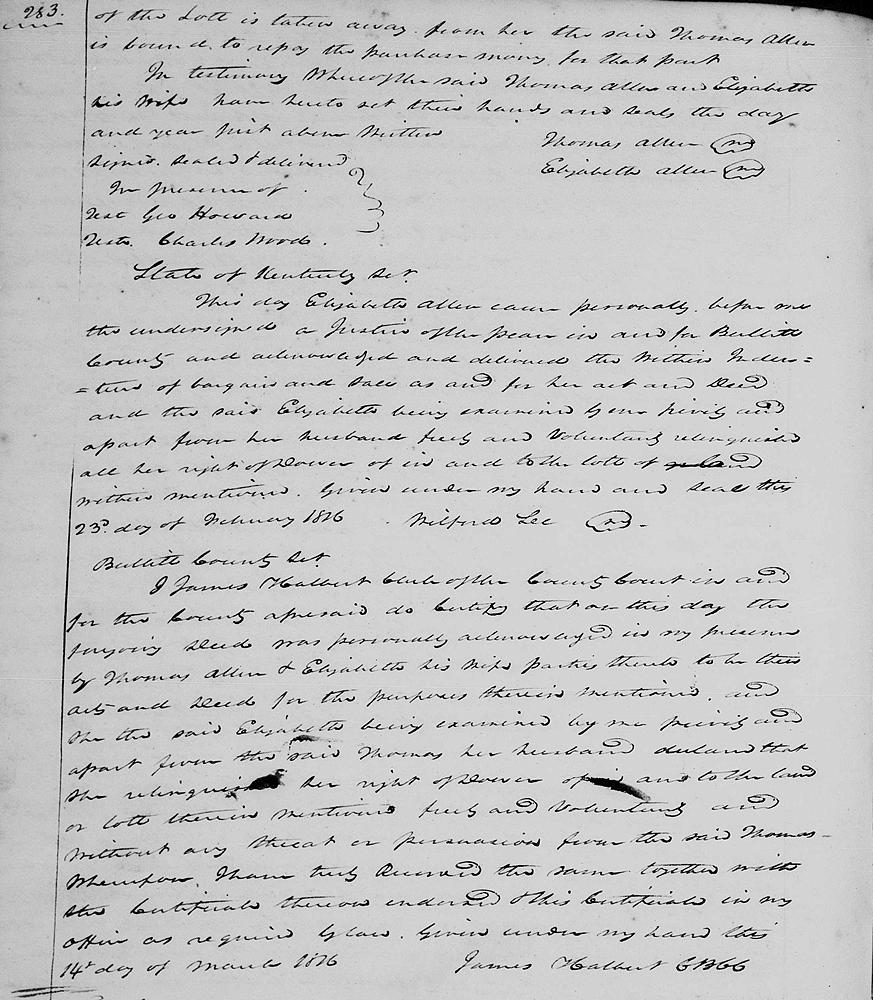 283.
of the Lott is taken away from her the said Thomas Allen
is bound to repay the purchase money for that part
In testimony Whereof the said Thomas Allen and Elizabeth
his Wife have hereto set their hands and seals the day
and year first above Written
Thomas Allen
Signed. Sealed & delivered
Elizabeth Allen
In presence of
Test Geo Howard
Teste. Charles Wood.
State of Kentucky Sct.
This day Elizabeth Allen came personally before me
the undersigned a Justice of the peace in and for Bullitt
County and acknowledged and delivered the Within Inden=
=ture of bargain and sale as and for her act and Deed
and the said Elizabeth being examined by me privily and
apart from her husband freely and Voluntarily relinquished
all her right of Dower of in and to the lotts of
within mentioned. Given under my hand and Seal this
23d. day of February 1816 Wilford Lee
Bullitt County Sct.
I James Halbert Clerk of the County Court in and
for the County aforesaid do Certify that on this day the
foregoing Deed was personally acknowledged in my presence
by Thomas Allen & Elizabeth his Wife parties thereto to be their
acts and Deed for the purposes therein mentioned, and
She the said Elizabeth being examined by me privily and
apart from the said Thomas her husband declared that
She relinquished her right of Dower of in and to the land
or lott therein mentioned freely and Voluntarily and
Without any threat or persuasion from the said Thomas
Whereupon I have truly Received the same together with
the Certificate thereon endorsed & this Certificate in my
office as required by law. Given under my hand this
14th day of March 1816 James Halbert CBCC